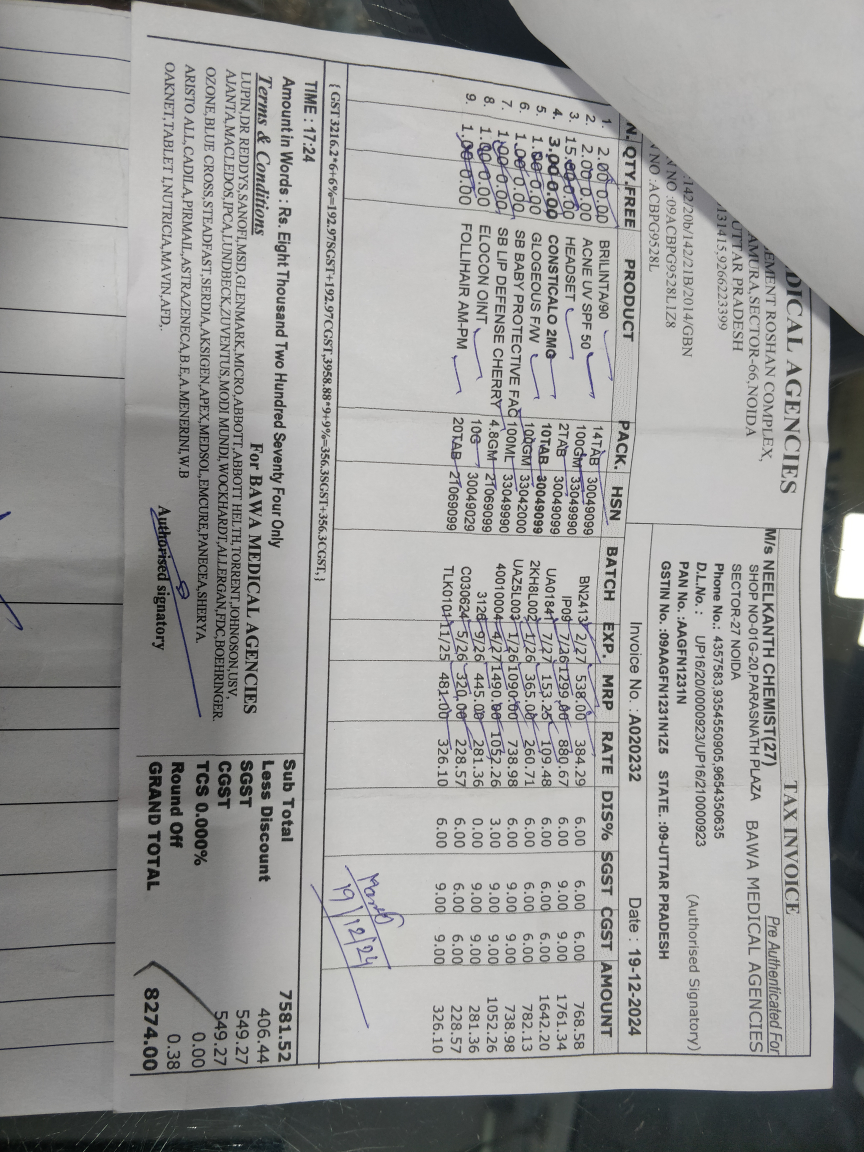 DICAL AGENCIES
EMENT ROSHAN COMPLEX,
AMURA,SECTOR-66,NOIDA
UTTAR PRADESH
131415,9266223399
142/20b/142/21B/2014/GBN
N NO :09ACBPG9528L1Z8
N NO :ACBPG9528L
TAX INVOICE
Pre Authenticated For
M/s NEELKANTH CHEMIST(27)
BAWA MEDICAL AGENCIES
SHOP NO-01G-20,PARASNATH PLAZA
SECTOR-27 NOIDA
Phone No.: 4357583,9354550905,9654350635
D.L.No.: UP16/20/0000923/UP16/210000923
(Authorised Signatory)
PAN No. :AAGFN1231N
GSTIN No. :09AAGFN1231N1Z5 STATE. :09-UTTAR PRADESH
Invoice No. :A020232 Date : 19-12-2024
N. QTY.FREE PRODUCT PACK. HSN BATCH EXP. MRP RATE DIS% SGST CGST AMOUNT
1. 2.00 0.00 BRILINTA/90 14TAB 30049099 BN2413 2/27 538.00 384.29 6.00 6.00 6.00 768.58
2. 2.00 0.00 ACNE UV SPF 50 100GM 33049990 IP09 7/26 1299.00 880.67 6.00 9.00 9.00 1761.34
3. 15.00 0.00 HEADSET 2TAB 30049099 UA0184 7/27 153.25 109.48 6.00 6.00 6.00 1642.20
4. 3.00 0.00 CONSTICALO 2MG 10TAB 30049099 2KH8L002 1/26 365.00 260.71 6.00 6.00 6.00 782.13
5. 1.00 0.00 GLOGEOUS F/W 100GM 33042000 UAZ5L003 1/26 1090.00 738.98 6.00 9.00 9.00 738.98
6. 1.00 0.00 SB BABY PROTECTIVE FAC 100ML 33049990 40010004 4/27 1490.00 1052.26 3.00 9.00 9.00 1052.26
7. 1.00 0.00 SB LIP DEFENSE CHERRY 4.8GM 21069099 3126 9/26 445.00 281.36 0.00 9.00 9.00 281.36
8. 1.00 0.00 ELOCON OINT 10G 30049029 C030624 5/26 320.00 228.57 6.00 6.00 6.00 228.57
9. 1.00 0.00 FOLLIHAIR AM-PM 20TAB 21069099 TLK0101 11/25 481.00 326.10 6.00 9.00 9.00 326.10
19/12/24
{ GST 3216.2*6+6%=192.97SGST+192.97CGST,3958.88*9+9%=356.3SGST+356.3CGST,}
TIME : 17:24
Amount in Words : Rs. Eight Thousand Two Hundred Seventy Four Only
Terms & Conditions
For BAWA MEDICAL AGENCIES
LUPIN,DR REDDYS,SANOFI,MSD,GLENMARK,MICRO,ABBOTT,ABBOTT HELTH,TORRENT,JOHNOSON,USV,
AJANTA,MACLEDOS,IPCA,LUNDBECK,ZUVENTUS,MODI MUNDI,WOCKHARDT,ALLERGAN,FDC,BOEHRINGER.
OZONE,BLUE CROSS,STEADFAST,SERDIA,AKSIGEN,APEX,MEDSOL,EMCURE,PANECEA,SHERYA.
ARISTO ALL,CADILA,PIRMAIL,ASTRAZENECA,B.E,A.MENERINI,W.B
OAKNET,TABLET I,NUTRICIA,MAVIN,AFD,.
Authorised signatory
Sub Total 7581.52
Less Discount 406.44
SGST 549.27
CGST 549.27
TCS 0.000% 0.00
Round Off 0.38
GRAND TOTAL 8274.00